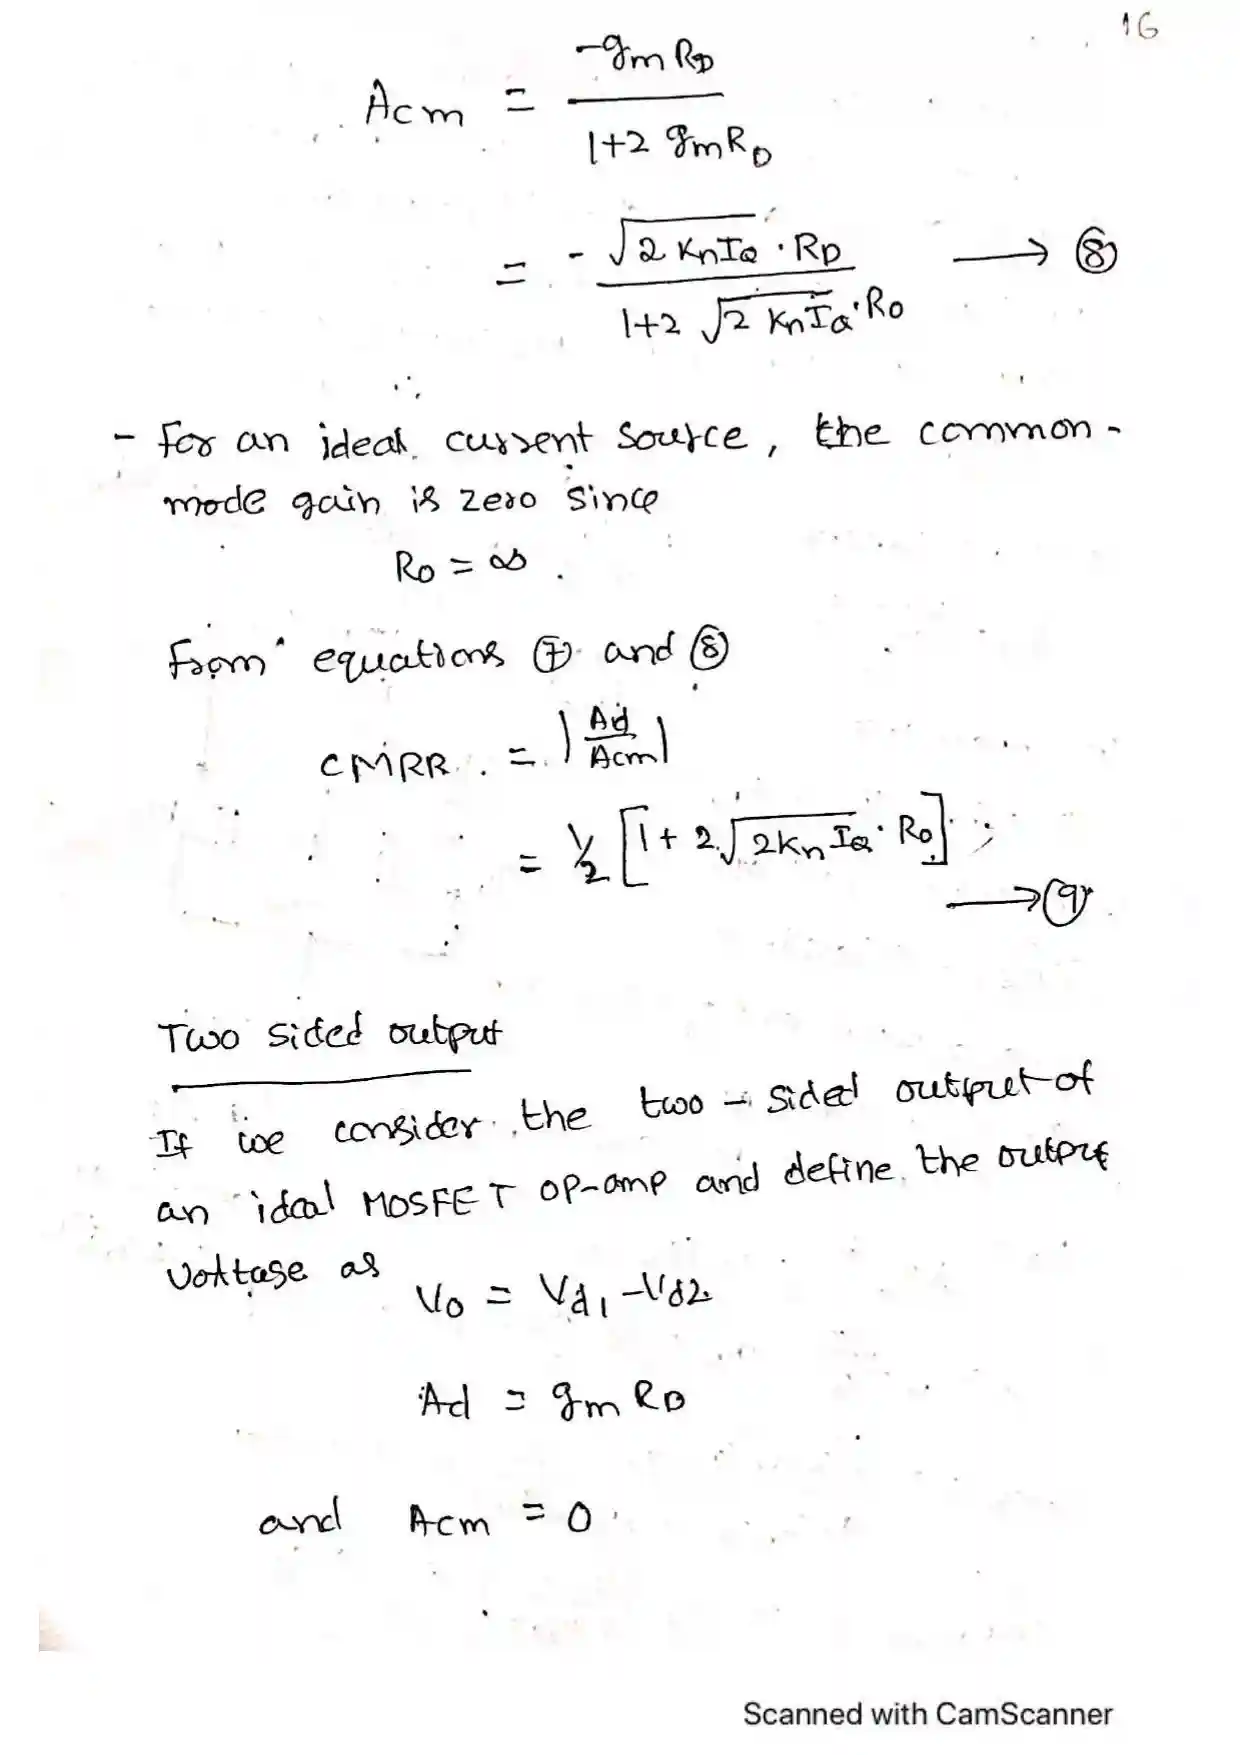 16
Acm = -gm RD / 1+2 gm Ro
= - √2 KnIQ · RD / 1+2 √2 KnIQ · Ro → ⑧
- For an ideal current source, the common-
mode gain is zero since
Ro = ∞.
From equations ⑦ and ⑧
CMRR = |Ad/Acm|
= ½ [1 + 2√2Kn IQ · Ro]
→ ⑨
Two sided output
If we consider the two - sided output of
an ideal MOSFET OP-amp and define the output
voltage as
Vo = Vd1 - Vd2
Ad = gm RD
and Acm = 0
Scanned with CamScanner